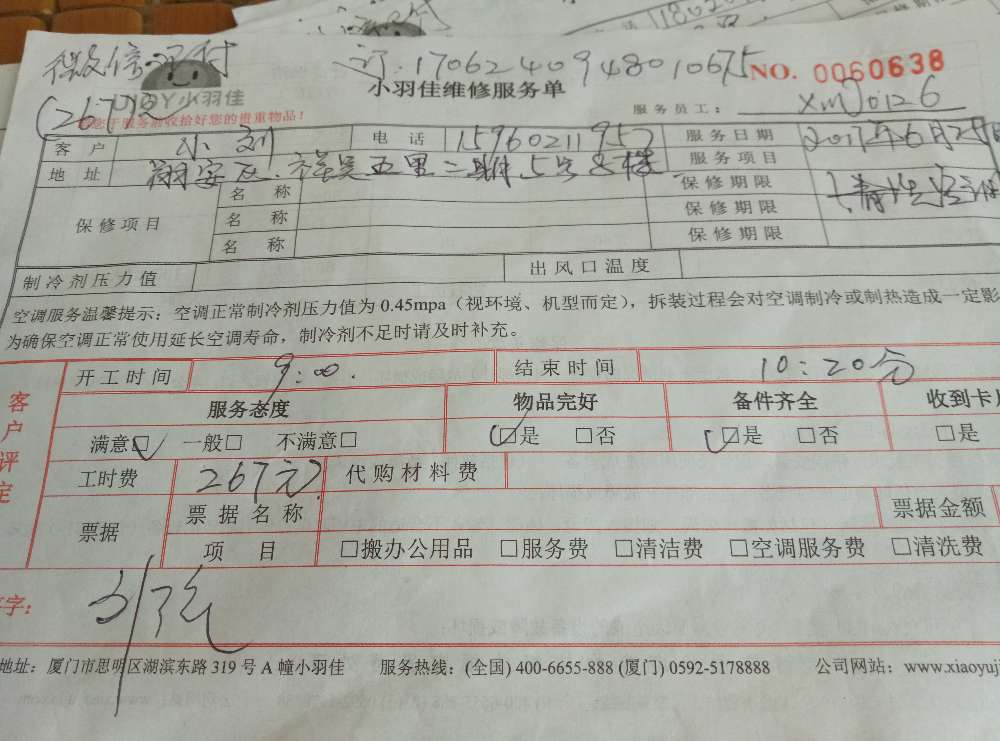 微信已付
订:1706240948010675 NO. 0060638
(267元) 小羽佳 小羽佳维修服务单
服务员工: XMJ0126
您于服务前收给好您的贵重物品!
客 户 小刘 电 话 15960211957 服务日期 2017年6月25
地 址 翔安区 五里二 5号 服务项目
保修项目 名 称 保修期限
名 称 保修期限
名 称 保修期限
制冷剂压力值 出风口温度
空调服务温馨提示:空调正常制冷剂压力值为 0.45mpa(视环境、机型而定),拆装过程会对空调制冷或制热造成一定影
为确保空调正常使用延长空调寿命,制冷剂不足时请及时补充。
客户评定
开工时间 9:00. 结束时间 10:20分
服务态度 物品完好 备件齐全 收到卡
满意☑ 一般□ 不满意□ ☑是 □否 ☑是 □否 □是
工时费 267元 代购材料费
票据 票据名称 票据金额
项 目 □搬办公用品 □服务费 □清洁费 □空调服务费 □清洗费
字:
地址:厦门市思明区湖滨东路 319 号 A 幢小羽佳 服务热线:(全国) 400-6655-888 (厦门) 0592-5178888 公司网站:www.xiaoyuji